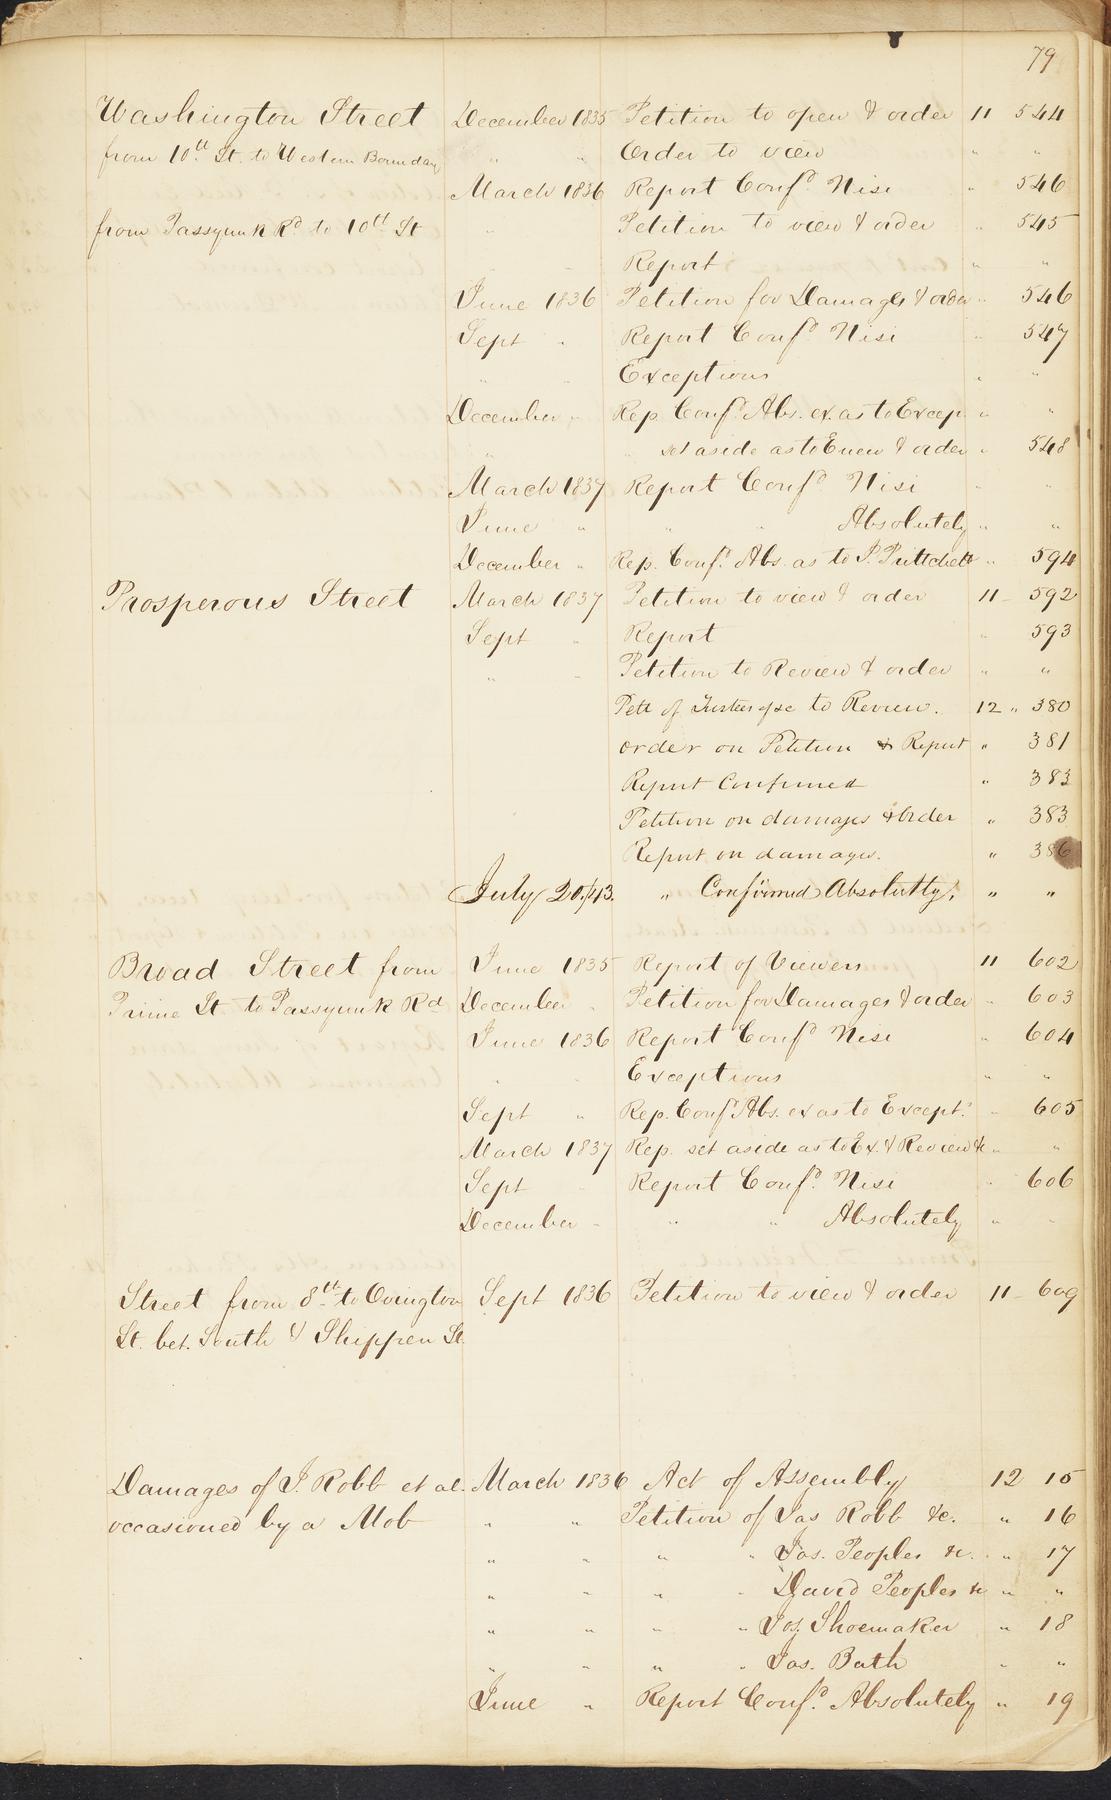 79
Washington Street December 1835 Petition to open & order 11 544
from 10th St. to Western Boundary " " Order to view " "
March 1836 Report Confd Nisi " 546
from Passyunk Rd to 10th St " Petition to view & order " 545
" " Report " "
June 1836 Petition for Damages & order " 546
Sept " Report Confd Nisi " 547
" " Exceptions " "
December " Rep. Confd Abs. ex. as to Excep " "
" " set aside as to & order " 548
March 1837 Report Confd Nisi " "
June " " " Absolutely " "
December " Rep. Confd Abs. as to P. Prittchett " 594
Prosperous Street March 1837 Petition to view & order 11 592
Sept " Report " 593
" " Petition to Review & order " "
Pett of &c to Review. 12 " 380
order on Petition & Report " 381
Report Confirmed " 383
Petition on damages & Order " 383
Report on damages. " 386
July 20./43. " Confirmed Absolutly. " "
Broad Street from June 1835 Report of Viewers 11 602
Prime St. to Passyunk Rd December " Petition for Damages & order " 603
June 1836 Report Confd Nisi " 604
" " Exceptions " "
Sept " Rep. Confd Abs. ex as to Except. " 605
March 1837 Rep. set aside as to Ex. & Review &c " "
Sept " Report Confd. Nisi " 606
December " " " Absolutely " "
Street from 8th to Ovington Sept 1836 Petition to view & order 11 609
St. bet. South & Shippen St.
Damages of J. Robb et al. March 1836 Act of Assembly 12 15
occasioned by a Mob " " Petition of Jas Robb &c. " 16
" " " " Jas. Peoples &c. " 17
" " " " David Peoples &c " "
" " " " Jos. Shoemaker " 18
" " " " Jas. Bath " "
June " Report Confd. Absolutely " 19